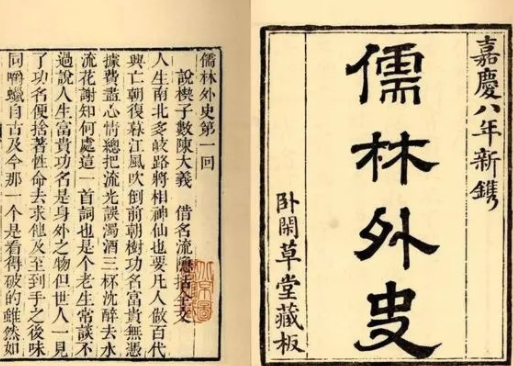 嘉慶八年新鐫
儒林外史
卧閑草堂藏板
儒林外史第一回
說楔子敷陳大義　借名流隱括全文
人生南北多岐路將相神仙也要凡人做百代
興亡朝復暮江風吹倒前朝樹功名富貴無憑
據費盡心情總把流光誤濁酒三杯沈醉去水
流花謝知何處這一首詞也是個老生常談不
過說人生富貴功名是身外之物但世人一見
了功名便捨著性命去求他及至到手之後味
同嚼蠟自古及今那一個是看得破的雖然如